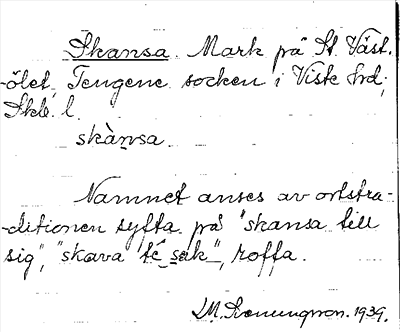 Skansa. Mark på St. Väst-
ölet, Tengene socken i Viste hd,
Skb. l.
skànsa.
Namnet anses av ortstra-
ditionen syfta på "skansa till
sig", "skava te sæk", roffa.
M. 1939.